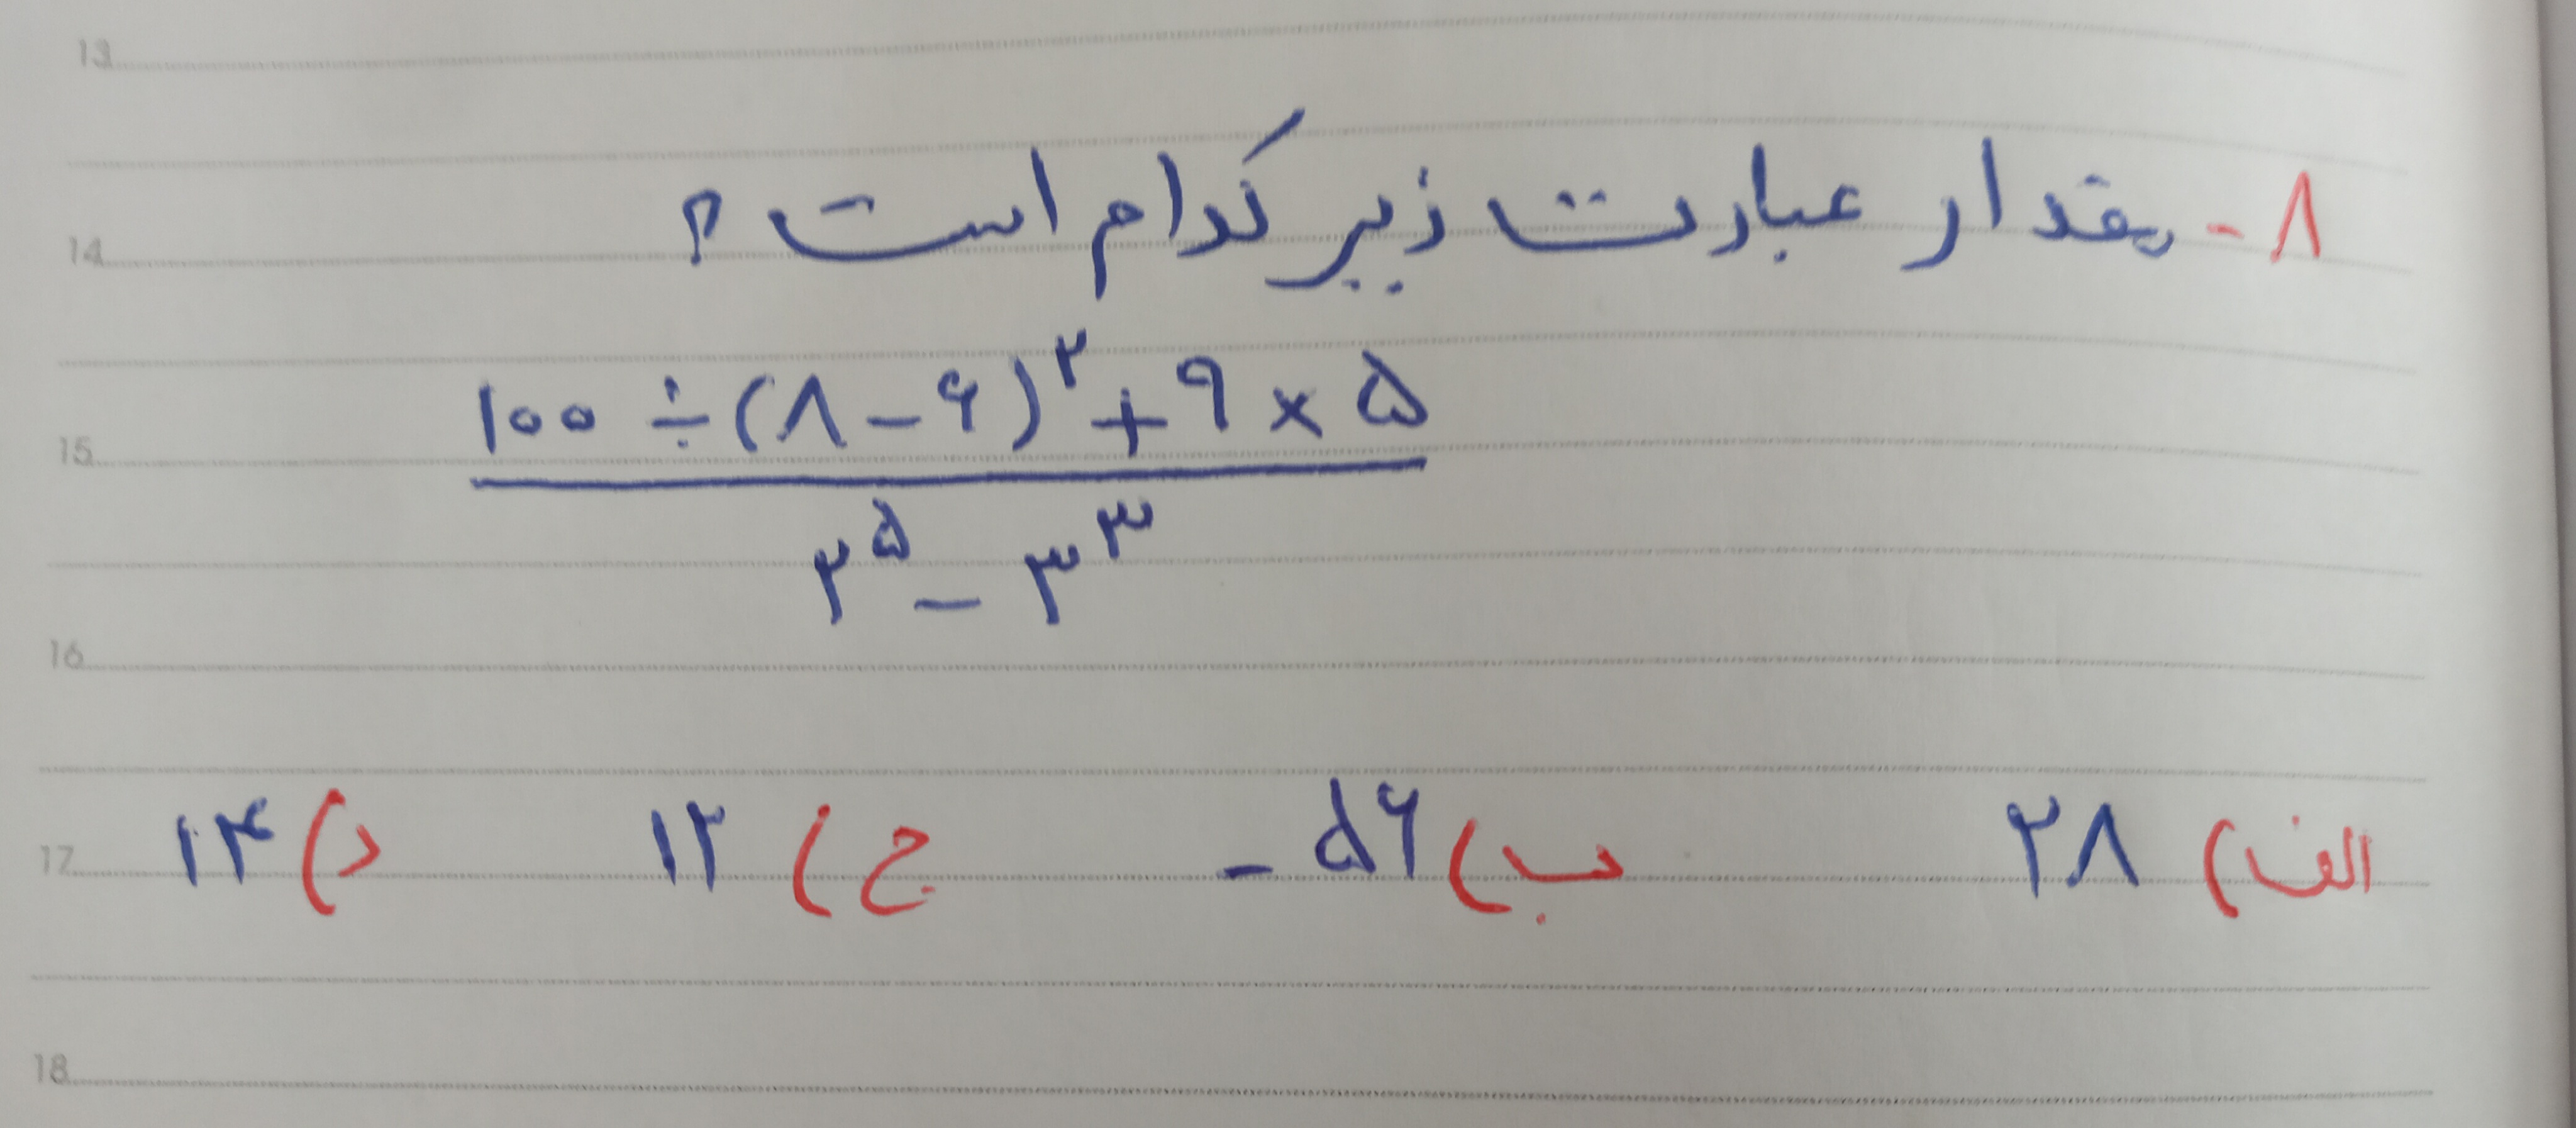 13
۸- مقدار عبارت زیر کدام است ؟
14
۱۰۰ ÷ (۸ - ۶)^۲ + ۹ × ۵
15
۲^۵ - ۳^۳
16
الف) ۲۸ ب) -۵۶ ج) ۱۲ د) ۱۴
17
18